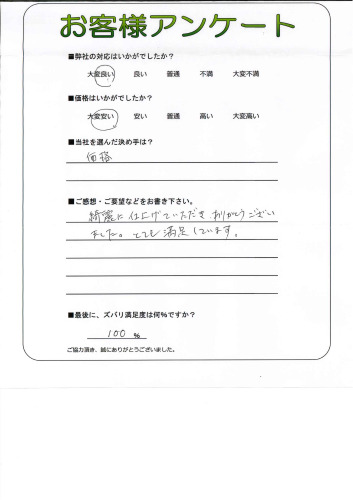 お客様アンケート
■弊社の対応はいかがでしたか？
大変良い 良い 普通 不満 大変不満
■価格はいかがでしたか？
大変安い 安い 普通 高い 大変高い
■当社を選んだ決め手は？
価格
■ご感想・ご要望などをお書き下さい。
綺麗に仕上げていただきありがとうござい
ました。とても満足しています。
■最後に、ズバリ満足度は何%ですか？
100 %
ご協力頂き、誠にありがとうございました。